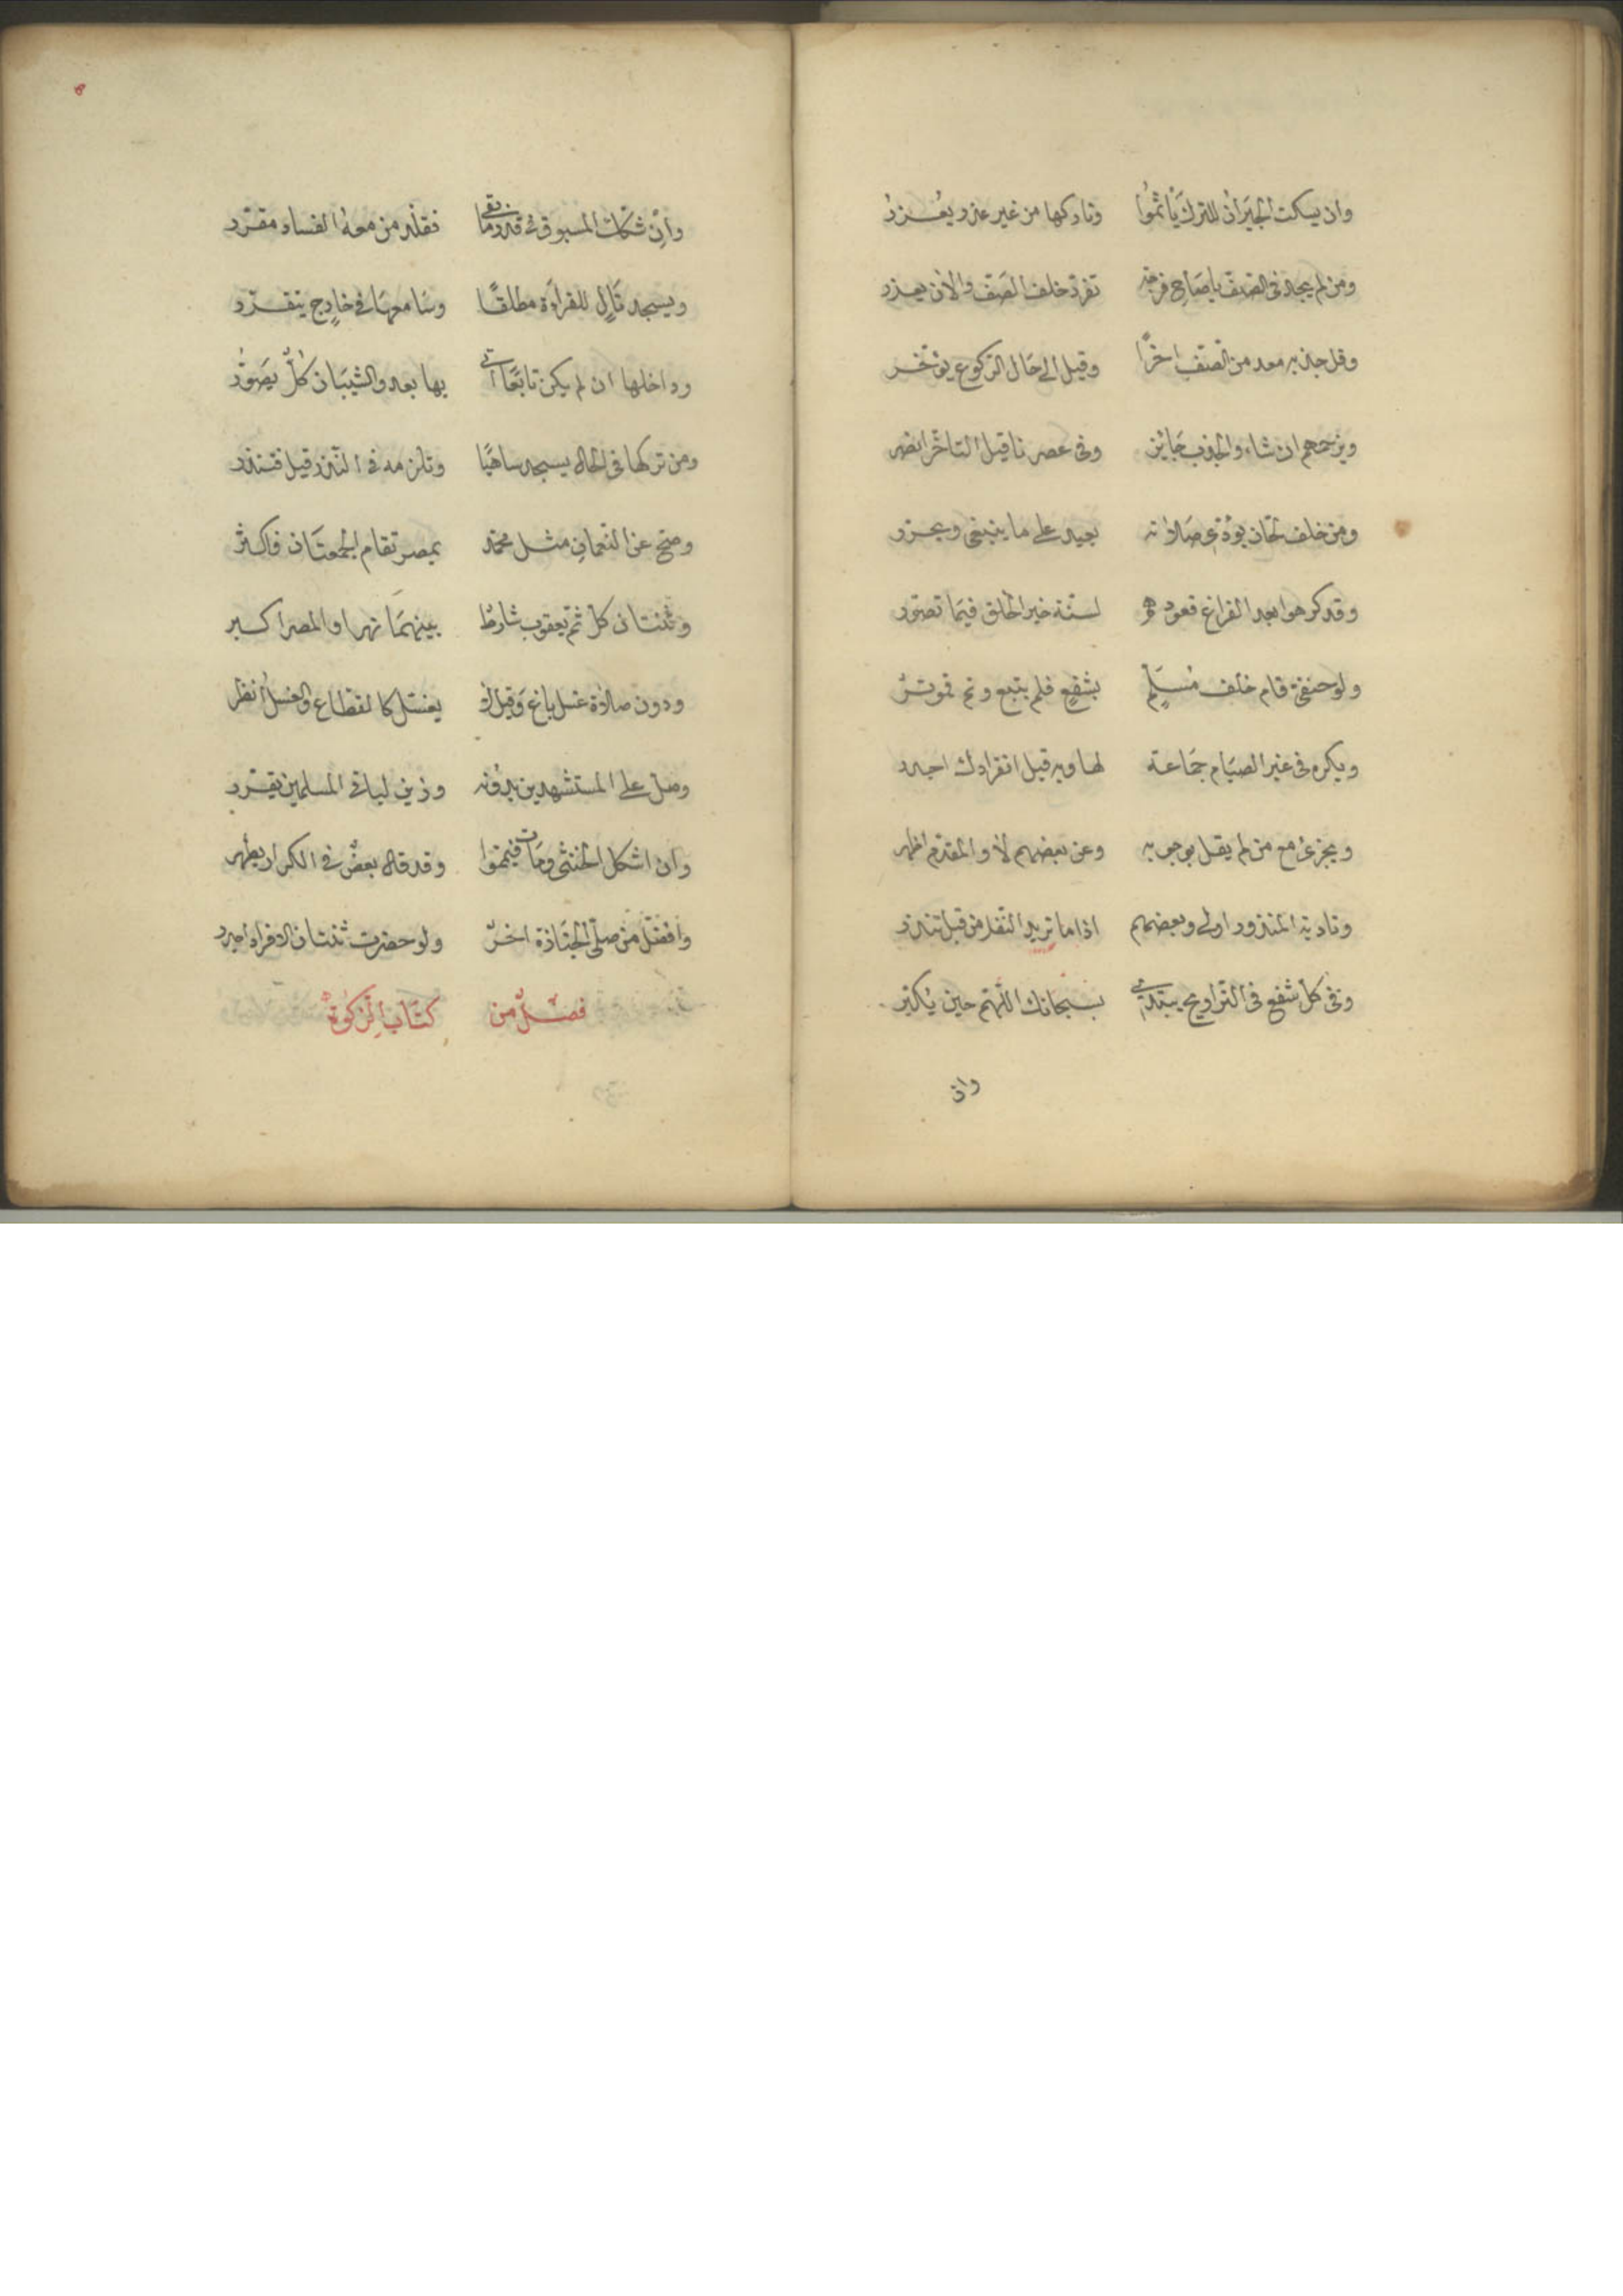 وان يسكت الجيران للترك يأثموا وتاركها من غير عذر يعزر
ومن لم يجد في الصف يا صاح فرجة تفرد خلف الصف والان يعذر
وقيل الى حال الركوع يؤخر
ويزحمهم ان شاء والجذب جايز وفى عصرنا قيل التاخر انضر
ومن خلف لحان يؤدى صلاته يعيد على ما ينبغى ويحرر
وقد كرهوا بعد الفراغ قعودهم لسنة خير الخلق فيما تصور
ولو حنفى قام خلف مسلم بشفع فلم يتبع وتم فموتر
ويكره فى غير الصيام جماعة لها وبه قيل انفرادك اجدر
ويجزئ مع من لم يقل بوجوبه وعن بعضهم لا والمقدم اظهر
وتادية المنذور اولى وبعضهم اذا ما تريد النفل من قبل تنذر
وفى كل شفع فى التراويح يبتدى بسبحانك اللهم حين يكبر
وان
وان شكت المسبوق فى قدر ما بقى فقلد من معه الفساد مقرر
ويسجد تال للقراءة مطلقا وسامعها فى خارج يتقرر
وداخلها ان لم يكن تابعا اتى بها بعد والشيبان كل يصور
ومن تركها فى الحال يسجد ساهيا وتلزمه فى النذر قيل فتنذر
وصح عن النعمان مثل محمد بمصر تقام الجمعتان فاكثر
وثنتان كل ثم يعقوب شارط بينهما نهرا والمصر اكبر
ودون صلاة غسل باغ وقيل لو يغسل كالقطاع والغسل انظر
وصل على المستشهدين بدونه وزين لباقى المسلمين يقرر
وان اشكل الخنثى ومات فيمموا وقد قال بعض فى الكوار يطهر
وافضل من صلى الجنازة اخر ولو حضرت ثنتان الافراد اجدر
فصل من كتاب الزكوة